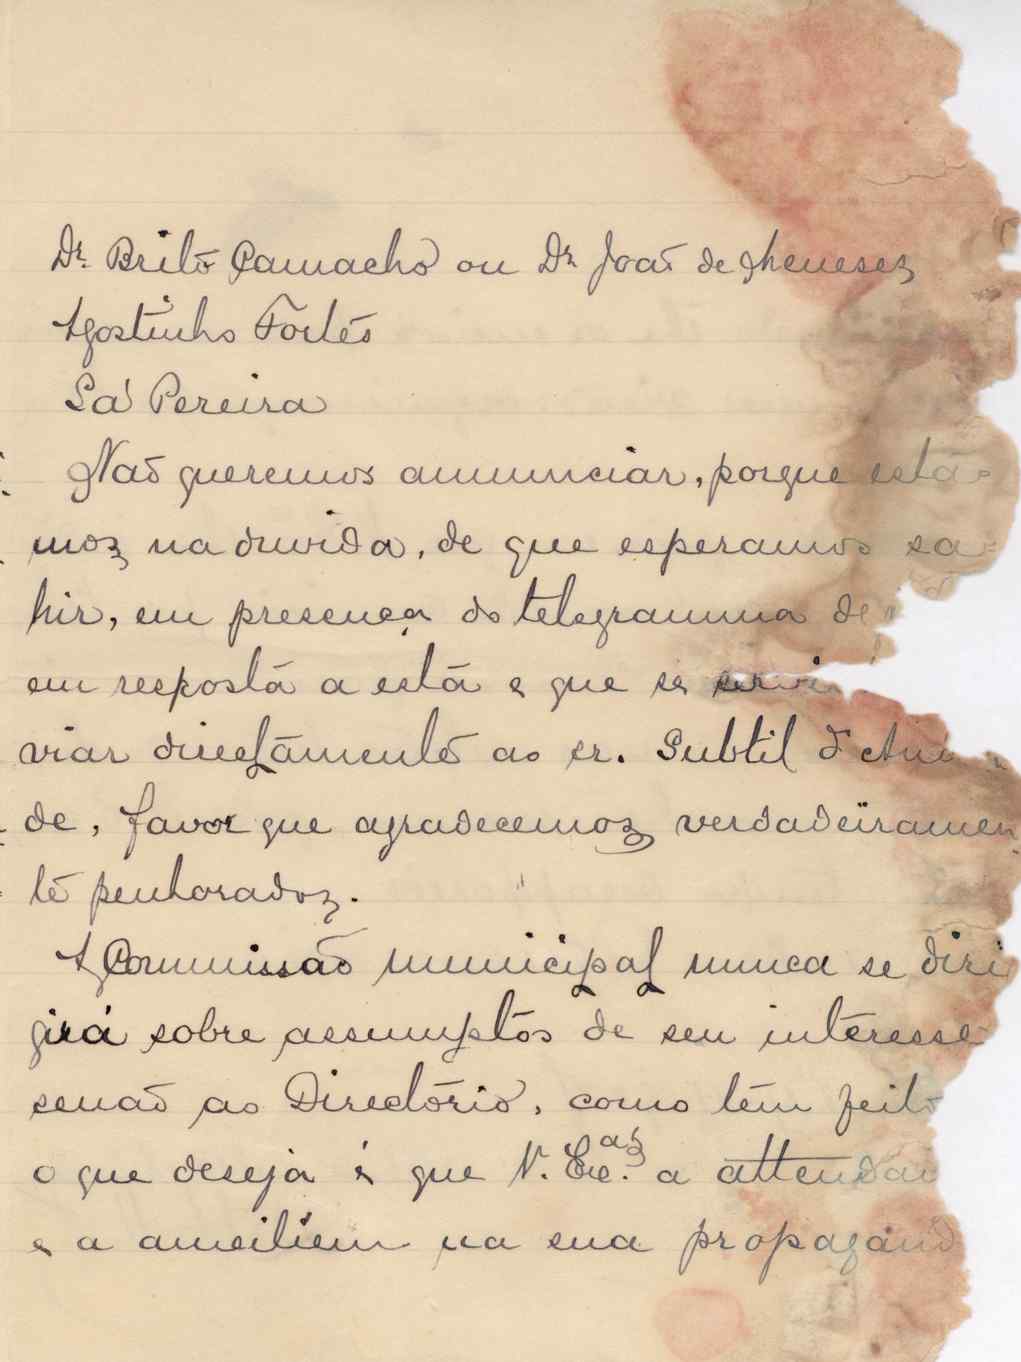 Dr. Brito Camacho ou Dr. João de Menesez
Agostinho Fortes
Sá Pereira
Não queremos annunciar, porque esta-
moz na duvida, de que esperamos sa-
hir, em presença do telegramma de
em resposta a esta e que se
viar directamente ao sr. Subtil d'
de, favor que agradecemoz verdadeiramen
te penhoradoz.
A Commissão municipal nunca se diri
girá sobre assumptos de seu interesse
senão ao Directório, como tem feito
o que deseja é que V. Ex.as a attendam
e a auxiliem na sua propagand